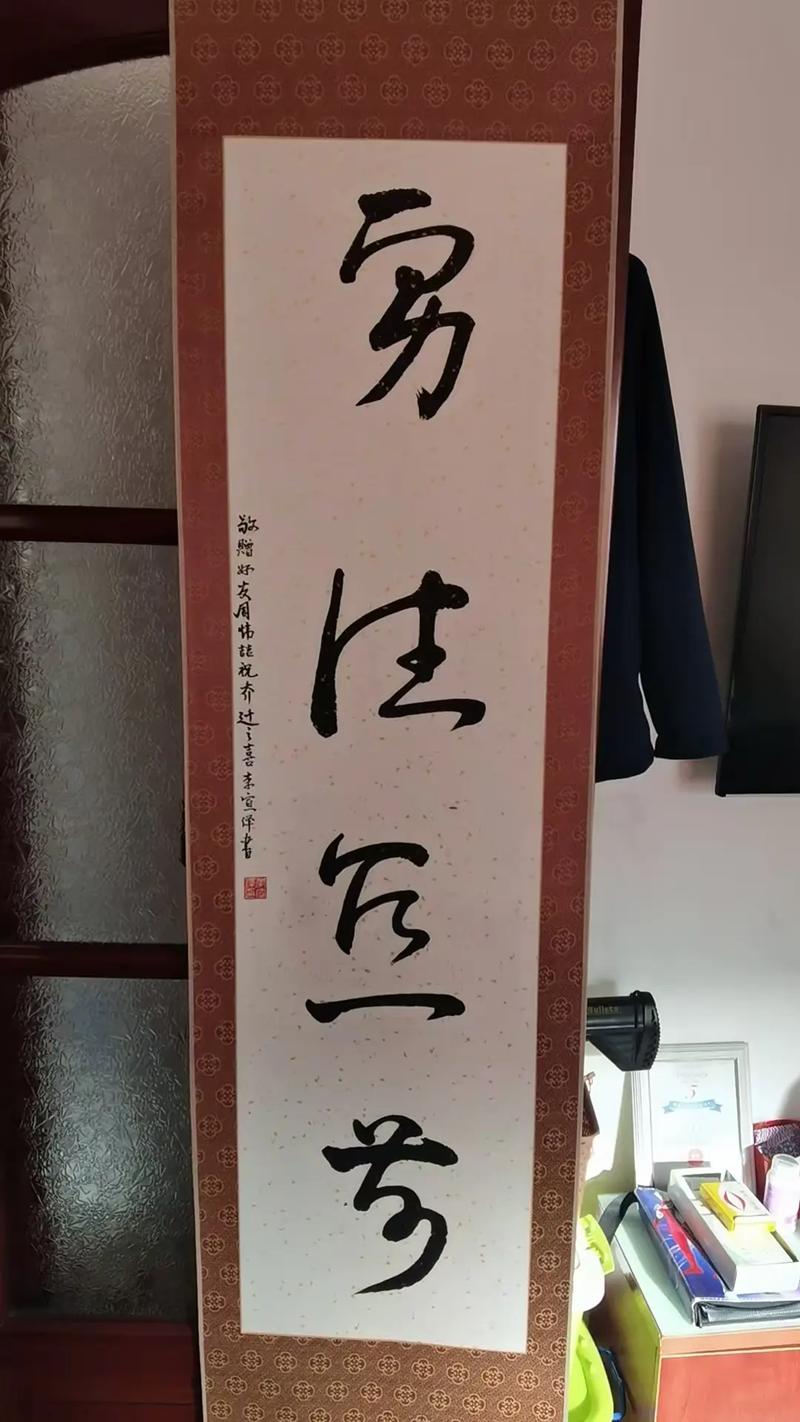 勇往直前
敬赠好友周炜喆祝乔迁之喜 李宣泽书